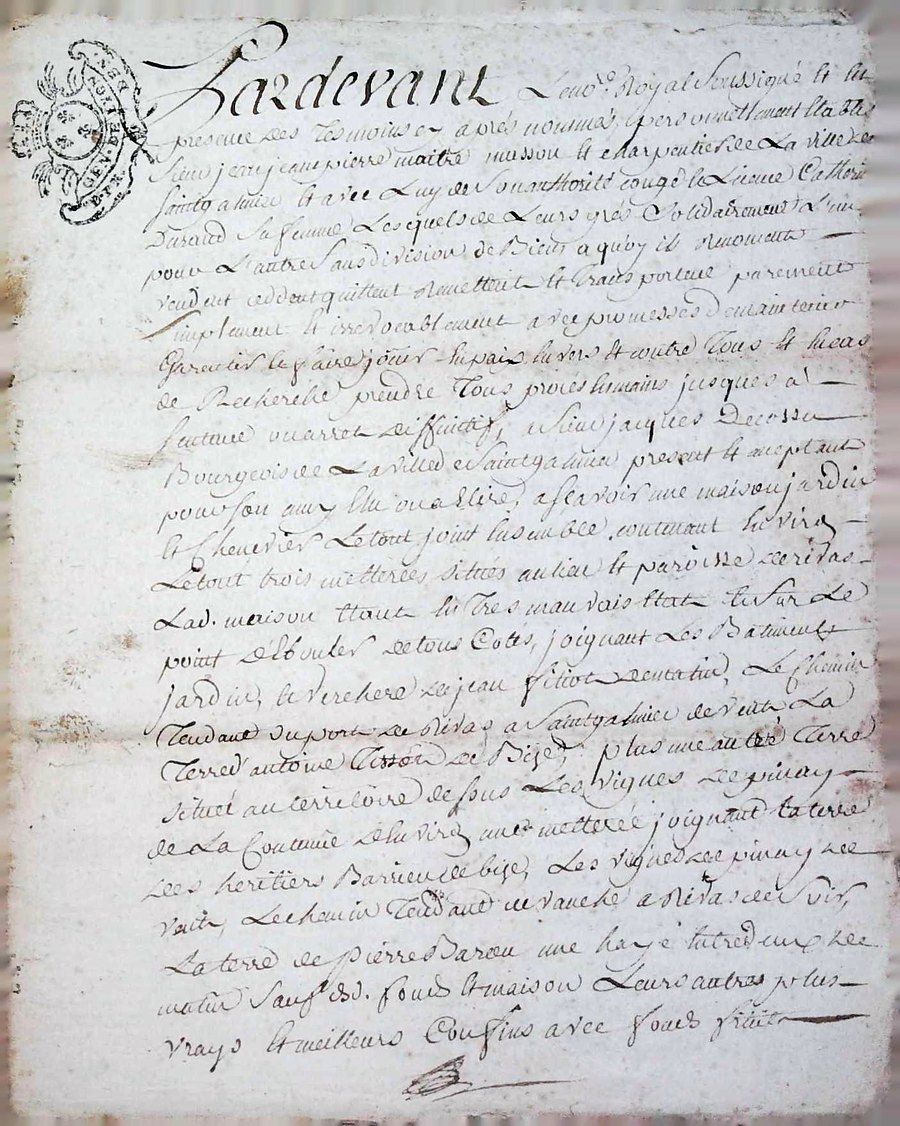 GEN. DE LION
Pardevant Le no.re Royal Soussigné Et En
presence des Tesmoins cy aprés nommés, personnellement Etablis
Sieur jean jeanpierre maitre masson Et charpentier de La ville de
Saintgalmier Et avec Luy de Son authorité congé Et Licence Catherine
Durand Sa femme Lesquels de Leurs grés Solidairement L'un
pour L'autre Sans division de Biens a quoy ils Renoncent
vendent ceddent quittent Remettent Et Transportent purement
Simplement Et irrevocablement avec promesses de maintenir
Garentir Et faire jouir En paix Envers Et contre Tous Et En cas
de Recherche prendre Tous procés En mains jusques a
Sentence ou arret deffinitif, a Sieur jacques Decossu
Bourgeois de La ville de Saintgalmier present Et aceptant
pour Son amy Elu ou a Elire, a Scavoir une maison jardin
Et Chenevier Le tout joint Ensemble, contenant Environ
Le tout trois metterées, Situés au lieu Et paroisse de rivas
Lad. maison Etant En Tres mauvais Etat Et Sur Le
point d'Ebouler de tous Cotés, joignant Les Batiments
jardin, Et verchere de jean fitiot de matin, Le Chemin
Tendant du port de Rivas a Saintgalmier de vent La
Terre d'antoine Tisson de Bize, plus une autre Terre
Situé au territoire de Sous Les vignes de pinay
de La Contenue d'Environ une metterée joignant La terre
des heritiers Barrieu de bize, Les vignes de pinay de
vent, Le chemin Tendant de vauche a Rivas de Soir,
La terre de pierre Barou une haye Entredeux de
matin Sauf desd. fonds Et maison Leurs autres plus
vrays Et meilleurs Confins avec fonds